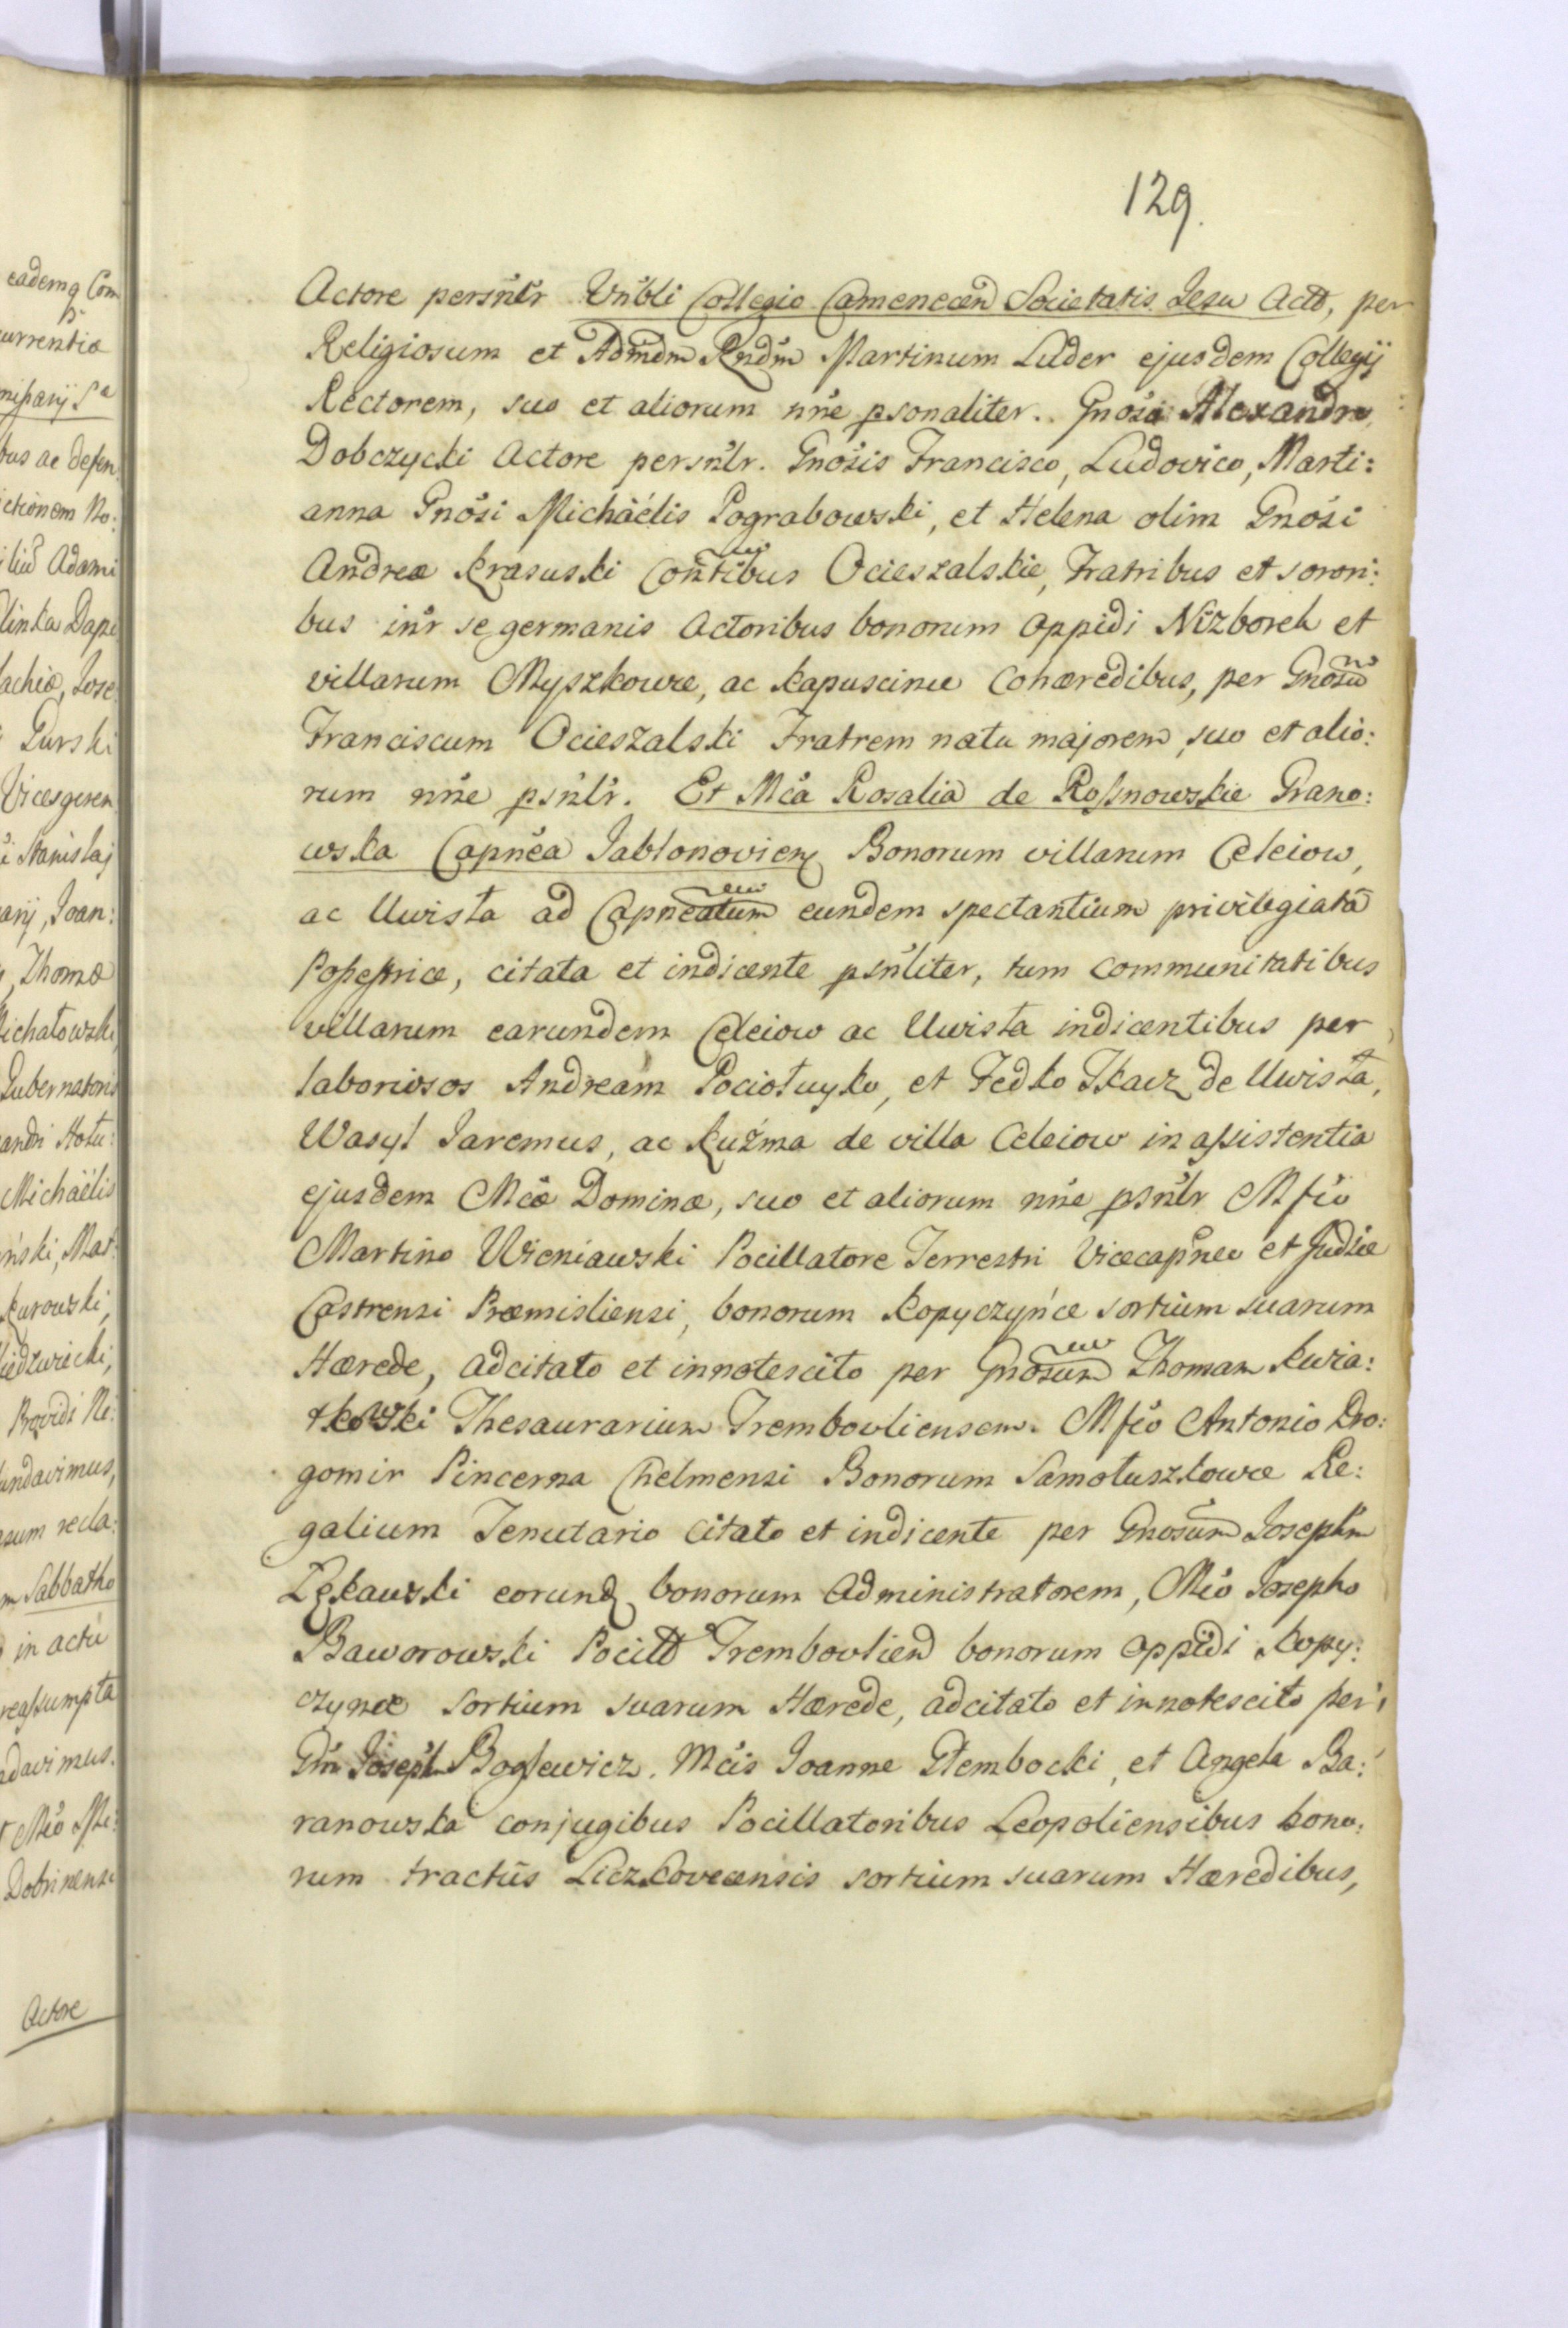 129.
Actore persnlr Vnbli Collegio Camenecen Societatis Jesu Act, per
Religiosum et Admdm Rndm Martinum Luder ejusdem Collegij
Rectorem, suo et aliorum nne psonaliter. Gnoso Alexandro
Dobczycki Actore persnlr. Gnosis Francisco, Ludovico, Marti:
anna Gnosi Michäelis Pograbowski, et Helena olim Gnosi
Andreæ Krasuski Contibus Ocieszalskie, Fratribus et sorori:
bus inr se germanis Actoribus bonorum oppidi Nizboreh et
villarum Myszkowce, ac Kapuscince Cohæredibus, per Gnosum
Franciscum Ocieszalski Fratrem natu majorem, suo et alio:
rum nne psnlr. Et Mca Rosalia de Rossnowskie Grano:
wska Capnea Jablonovien Bonorum villarum Celeiow,
ac Uwisla ad Capneatum eundem spectantium privilegiata
Possestrice, citata et indicente psnliter, tum communitatibus
villarum earundem Celeiow ac Uwisla indicentibus per
laboriosos Andream Pociołuyko, et Fedko Tkacz de Uwisła,
Wasyl Jaremus, ac Kuźma de villa Celeiow in assistentia
ejusdem Mcæ Dominæ, suo et aliorum nne psnlr Mfco
Martino Wieniawski Pocillatore Terrestri Vicecapneo et Judice
Castrensi Præmisliensi, bonorum Kopyczyńce sortium suarum
Hærede, adcitato et innotescito per Gnosum Thomam Kwia:
tkowski Thesaurarium Trembovliensem. Mfco Antonio Dro:
gomir Pincerna Chelmensi Bonorum Samołuszkowce Re:
galium Tenutario citato et indicente per Gnosum Josephm
Łękawski eorund bonorum Administratorem, Mco Josepho
Baworowski Pocill Trembovlien bonorum oppidi Kopy:
czynce sortium suarum Hærede, adcitato et innotescito per
Gm Joseph Bogusewicz. Mcis Joanne Głembocki, et Angela Ba:
ranowska conjugibus Pocillatoribus Leopoliensibus bono:
rum tractus Liczkovecensis sortium suarum Hæredibus,
eademq Com
urrentia
tus ac defen
ictionem No:
Adami
linka Dapi
achiæ, Jose
Gurski
Vicesgeren
Stanislaj
arij, Joan:
Thomæ
ichałowski,
Gubernatoris
andri Hołu:
Michäelis
ński, Mat:
Kurowski,
iedzwiecki,
Providi Ni:
undavimus,
sum recla:
m Sabbatho
in actu
reassumpta
davimus.
Dobrinensi
Actore